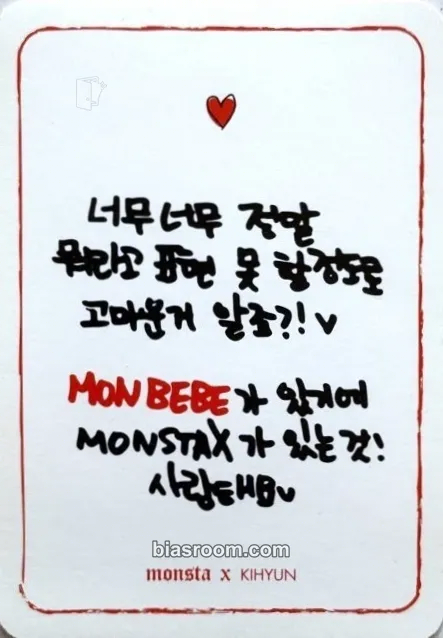 너무너무 정말
뭐라고 표현 못 할정도로
고마운거 알죠?! ♥
MONBEBE가 있기에
MONSTAX가 있는것!
사랑해
biasroom.com
monsta x KIHYUN